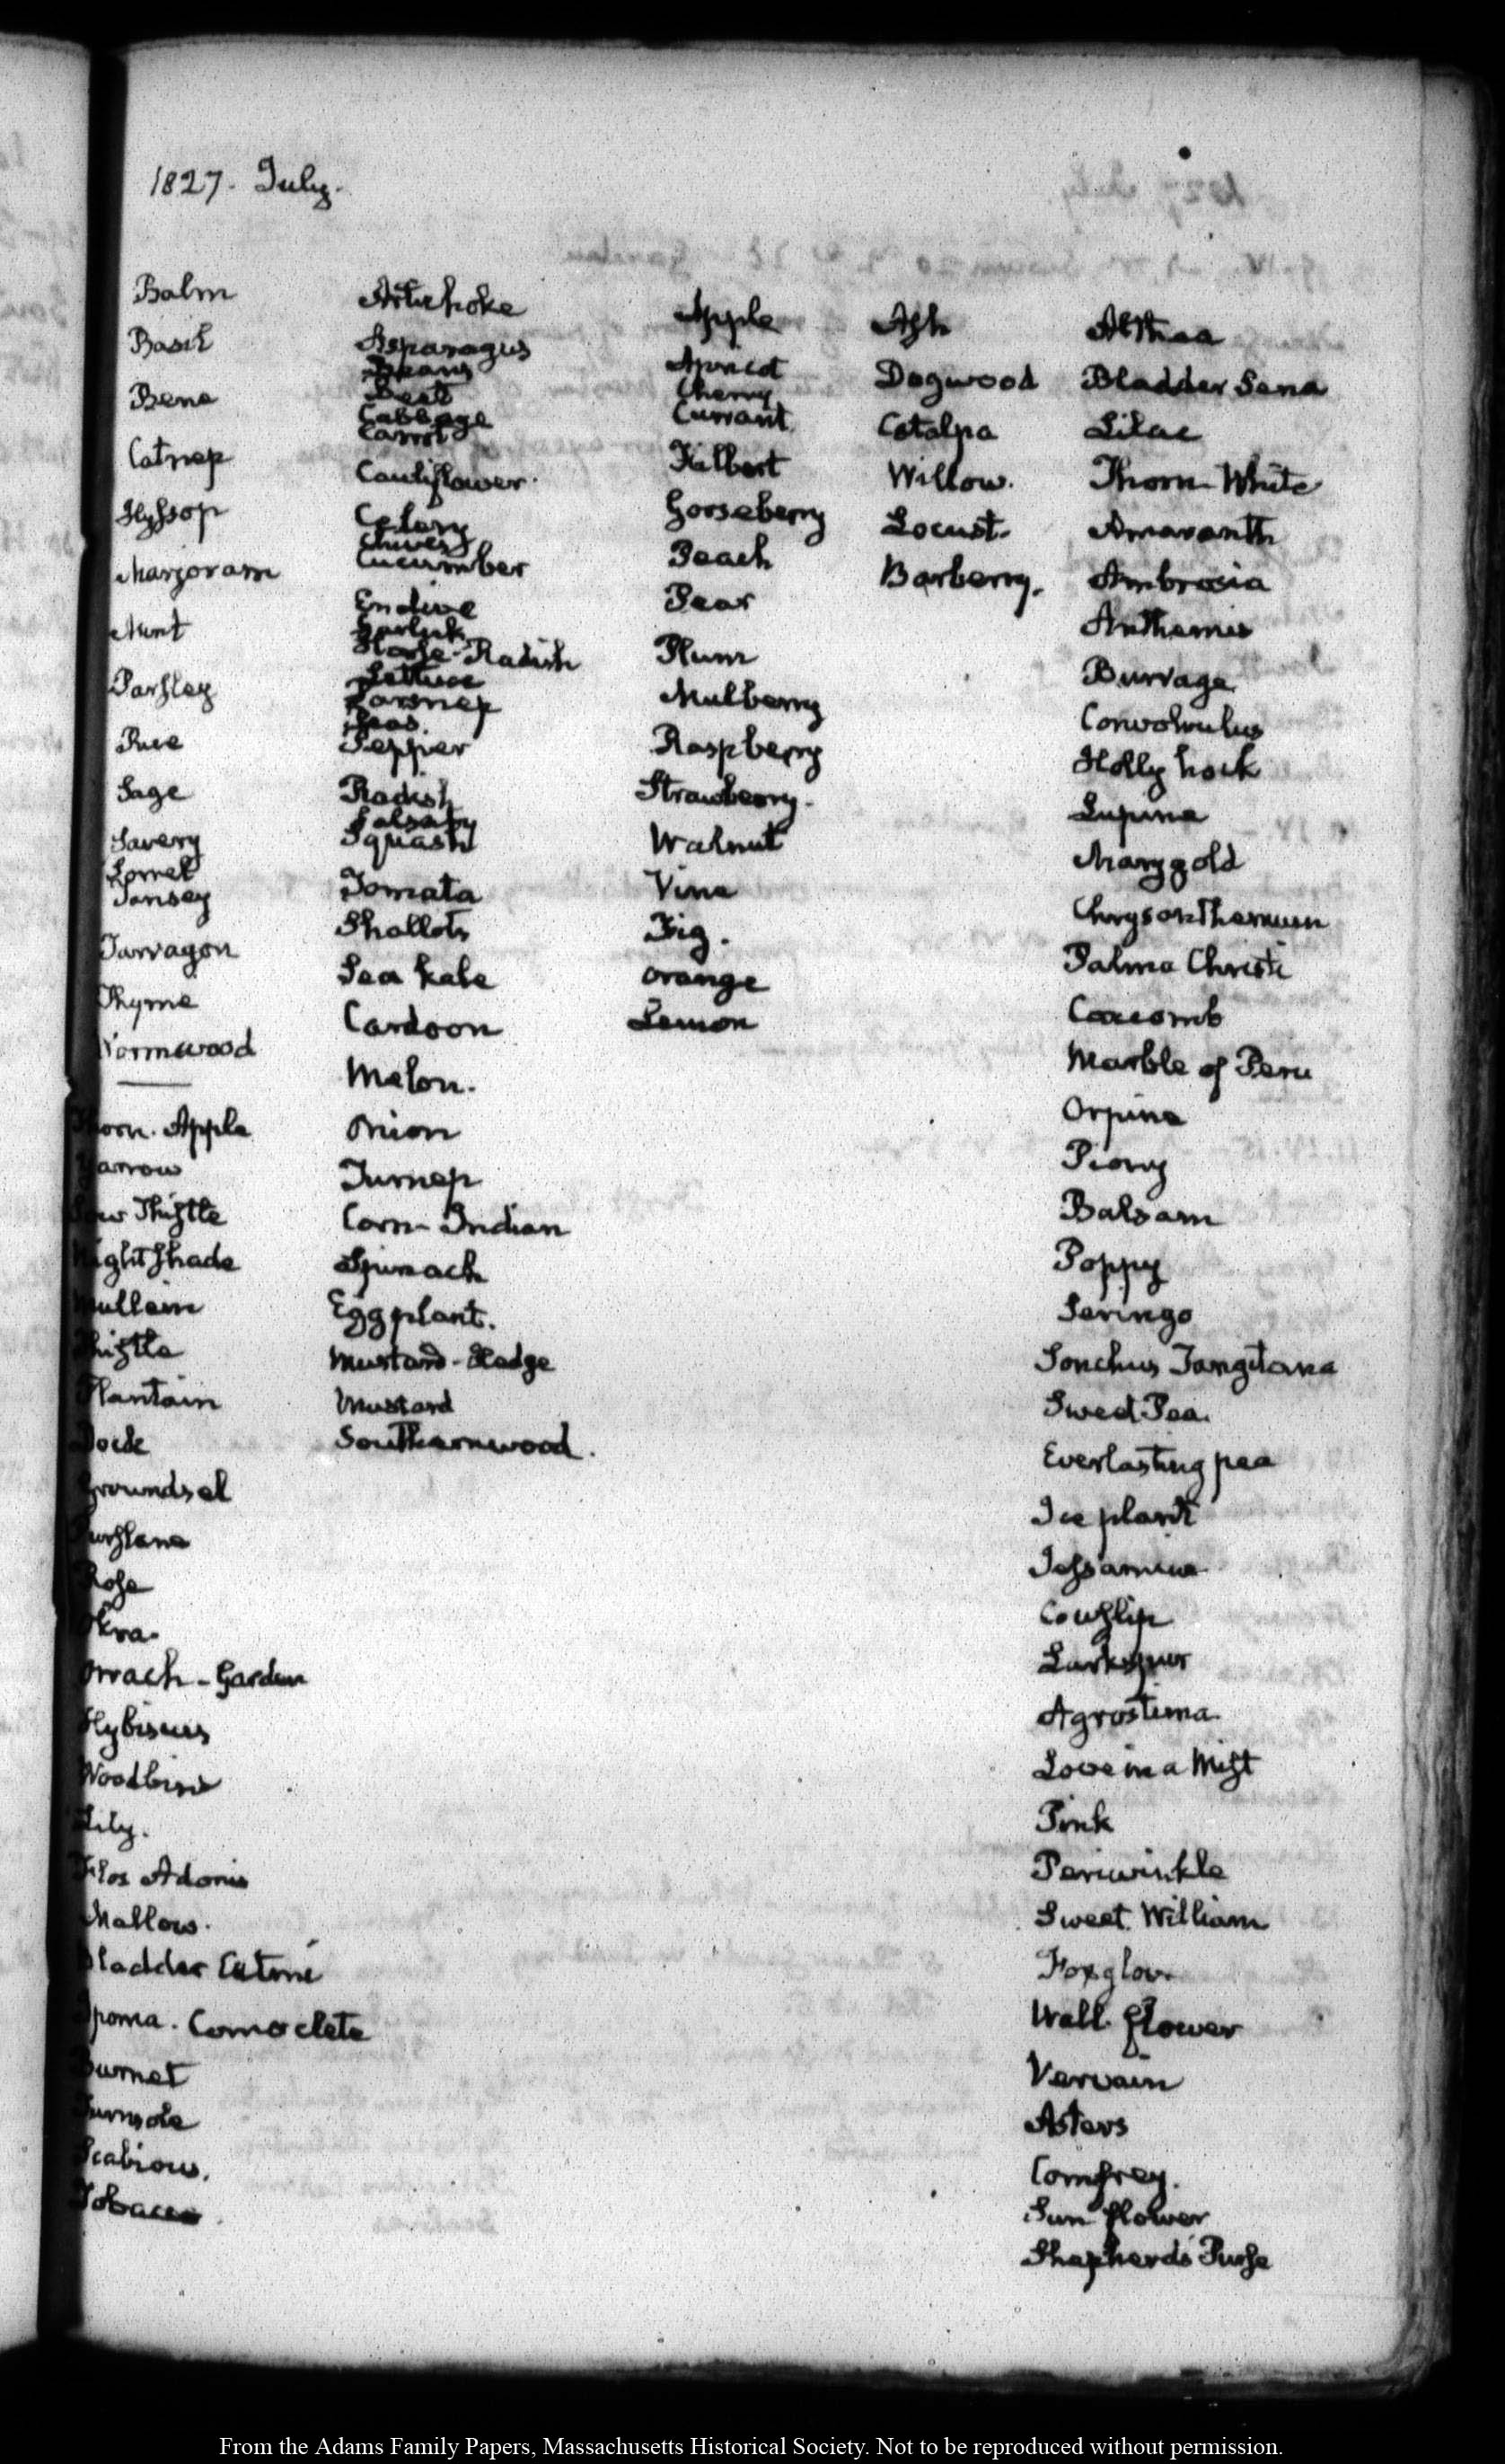 1827. July.
Balm
Basil
Bene
Catnep
Hyssop
Marjoram
Mint
Parsley
Rue
Sage
Savery
Sorrel
Tansey
Tarragon
Thyme
Wormwood
Thorn. Apple
Yarrow
Sow Thistle
Nightshade
Mullein
Thistle
Plantain
Dock
Groundsel
Purslane
Rose
Okra.
Orrach - Garden
Hybiscus
Woodbine
Lily.
Flos Adonis
Mallows.
Bladder
Ipoma.
Burnet
Turnsole
Scabious.
Tobacco.
Artichoke
Asparagus
Beans
Beet
Cabbage
Carrot
Cauliflower.
Celery
Chives
Cucumber
Endive
Garlick
Horse-Radish
Lettuce
Parsnep
Peas.
Pepper
Radish
Salsafy
Squash
Tomata
Shallots
Sea kale
Cardoon
Melon.
Onion
Turnep
Corn - Indian
Spinach
Egg plant.
Mustard - Hedge
Mustard
Southernwood.
Apple
Apricot
Cherry
Currant.
Filbert
Gooseberry
Peach
Pear
Plum
Mulberry
Raspberry
Strawberry.
Walnut
Vine
Fig.
Orange
Lemon
Ash
Dogwood
Catalpa
Willow.
Locust.
Barberry.
Althaea
Bladder Sena
Lilac
Thorn - White
Amaranth
Ambrosia
Anthemis
Burrage
Convolvulus
Holly hock
Lupine
Marygold
Chrysanthemum
Palma Christi
Coxcomb
Marble of Peru
Orpine
Piony
Balsam
Poppy
Seringo
Sonchus Tangitana
Sweet Pea.
Everlasting pea
Ice plant
Jessamine
Cowslip
Larkspur
Agrostima.
Love in a Mist
Pink
Periwinkle
Sweet. William
Foxglove
Wall flower
Vervain
Asters
Comfrey.
Sun flower
Shepherds' Purse
From the Adams Family Papers, Massachusetts Historical Society. Not to be reproduced without permission.